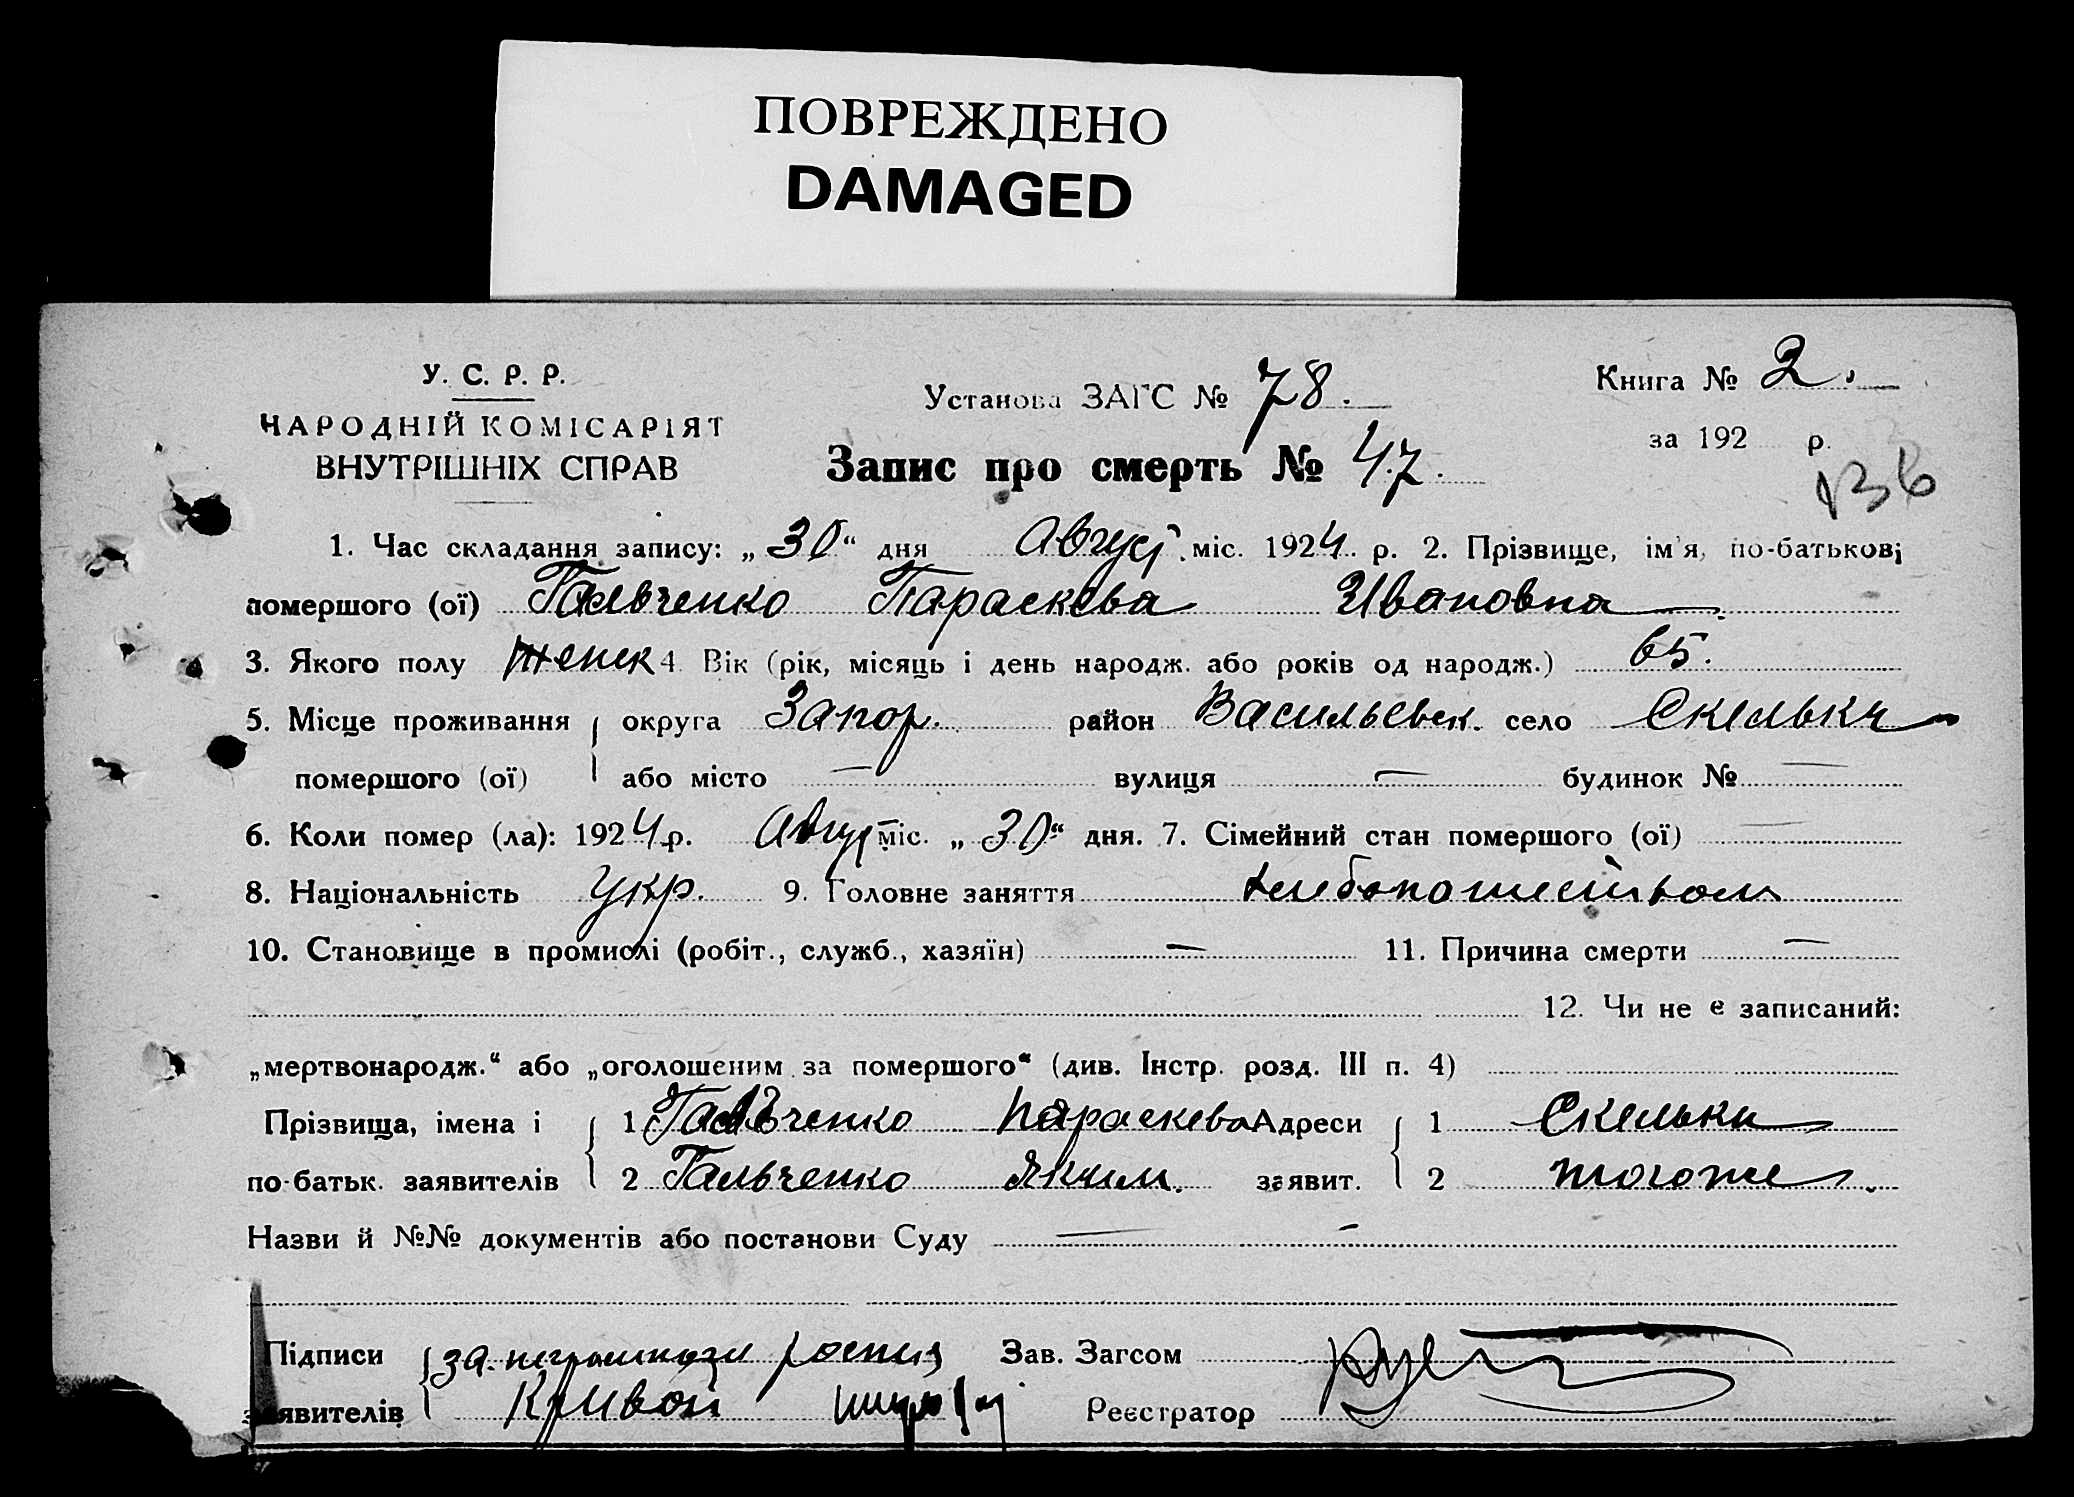 ПОВРЕЖДЕНО
DAMAGED
У. С. Р. Р.
НАРОДНІЙ КОМІСАРІЯТ
ВНУТРІШНІХ СПРАВ
Установа ЗАГС № 78.
Запис про смерть № 47.
Книга № 2.
за 192 р.
136
1. Час складання запису: „30“ дня Август. міс. 1924 р. 2. Прізвище, ім'я, по-батькові
помершого (ої) Гальченко Параскева Ивановна
3. Якого полу женск 4 Вік (рік, місяць і день народж. або років од народж.) 65.
5. Місце проживання округа Запор. район Васильевск. село Скельки
помершого (ої) або місто — вулиця — будинок № —
6. Коли помер (ла): 1924 р. Август міс. „30“ дня. 7. Сімейний стан помершого (ої) —
8. Національність Укр. 9. Головне заняття хлебопашеством
10. Становище в промислі (робіт., служб., хазяїн) — 11. Причина смерти —
12. Чи не є записаний:
„мертвонародж.“ або „оголошеним за помершого“ (див. Інстр. розд. III п. 4)
Прізвища, імена і 1 Гальченко Параскева Адреси 1 Скельки
по-батьк. заявителів 2 Гальченко Яким. заявит. 2 тогоже.
Назви й №№ документів або постанови Суду — -
Підписи за неграмотн роспис Зав. Загсом
заявителів Кривой Реєстратор